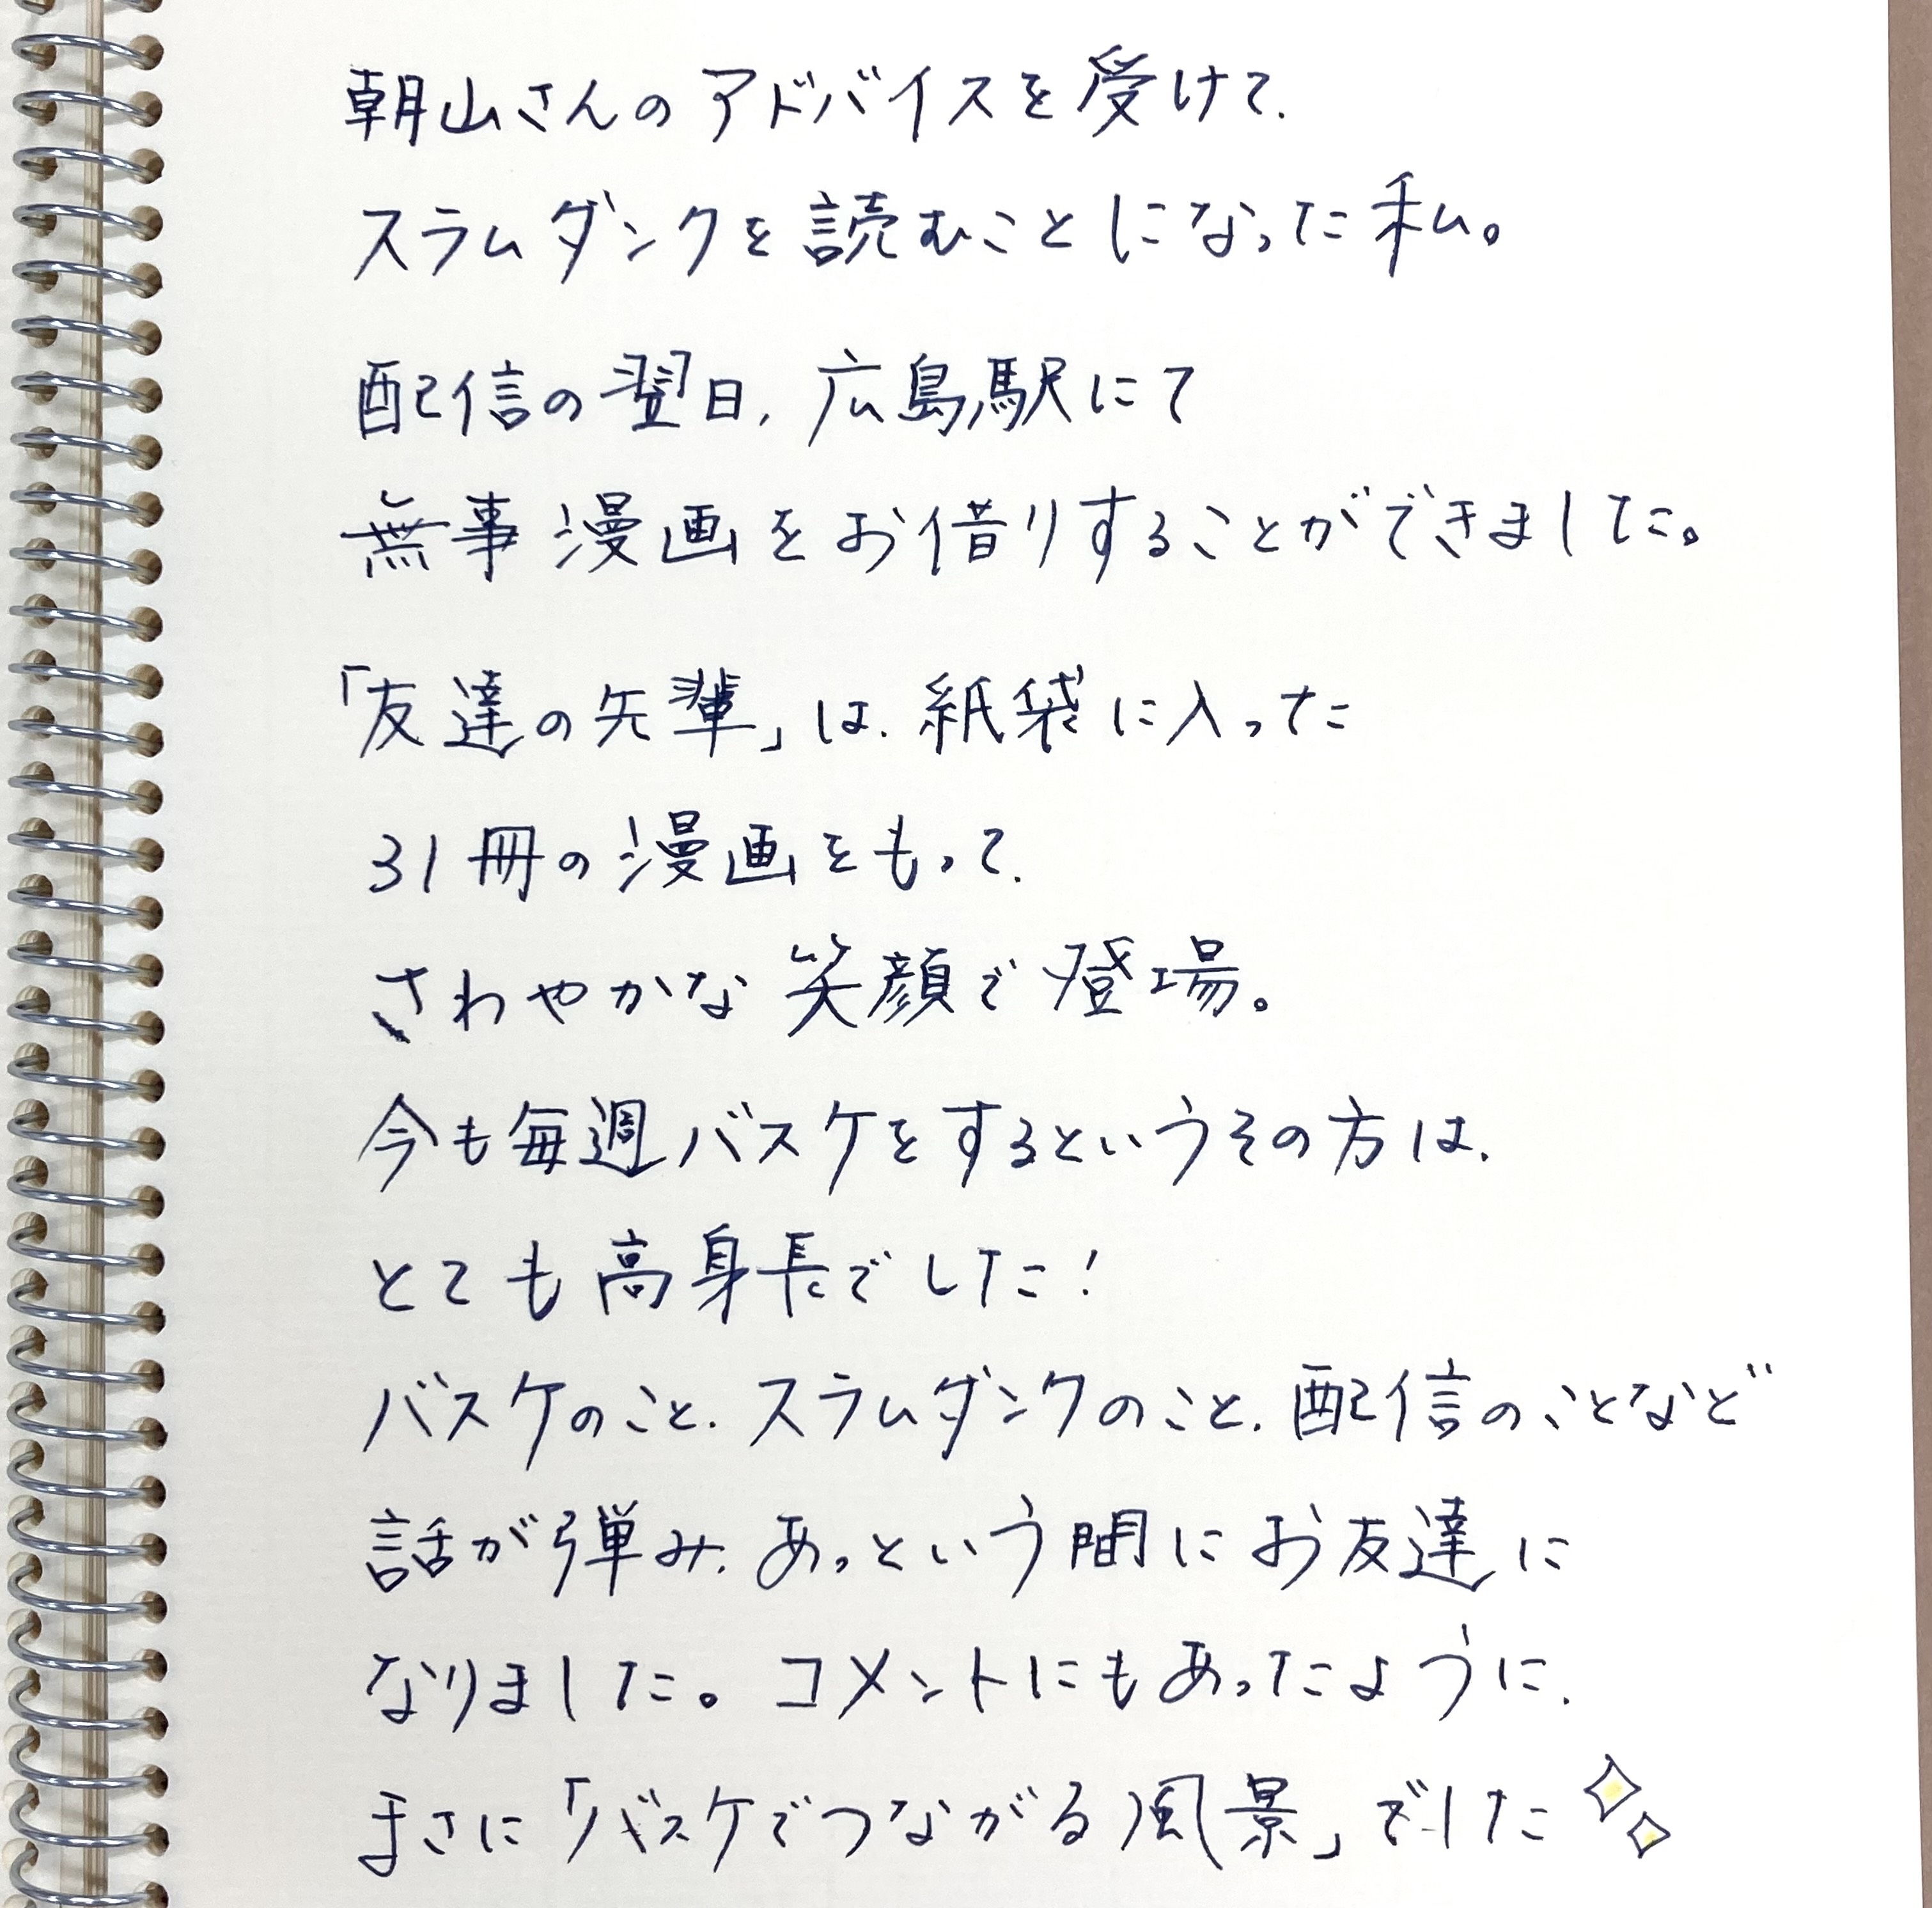 朝山さんのアドバイスを受けて、
スラムダンクを読むことになった私。
配信の翌日、広島駅にて
無事漫画をお借りすることができました。
「友達の先輩」は、紙袋に入った
31冊の漫画をもって、
さわやかな笑顔で登場。
今も毎週バスケをするというその方は、
とても高身長でした！
バスケのこと、スラムダンクのこと、配信のことなど
話が弾み、あっという間にお友達に
なりました。コメントにもあったように、
まさに「バスケでつながる風景」でした